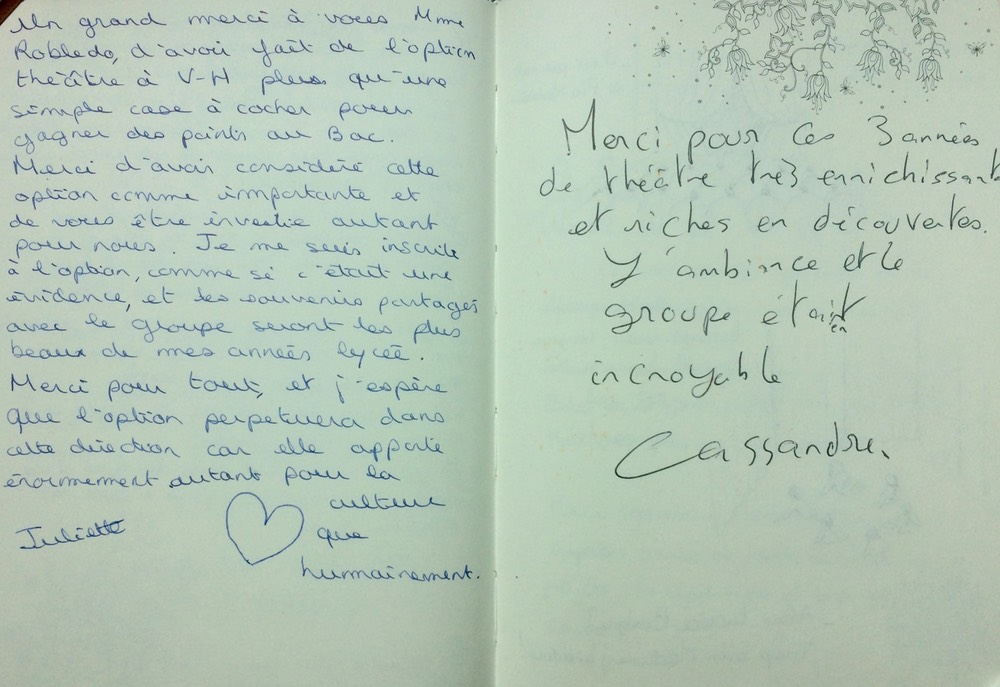 Un grand merci à vous Mme
Robledo, d'avoir fait de l'option
théâtre à V-H plus qu'une
simple case à cocher pour
gagner des points au Bac.
Merci d'avoir considéré cette
option comme importante et
de vous être investie autant
pour nous. Je me suis inscrite
à l'option, comme si c'était une
évidence, et les souvenirs partagés
avec le groupe seront les plus
beaux de mes années lycée.
Merci pour tout, et j'espère
que l'option perpetuera dans
cette direction car elle apporte
énormement autant pour la
culture
que
humainement.
Juliette
Merci pour ces 3 années
de théâtre très enrichissant
et riches en découvertes.
L'ambiance et le
groupe étaient
incroyable
Cassandre.